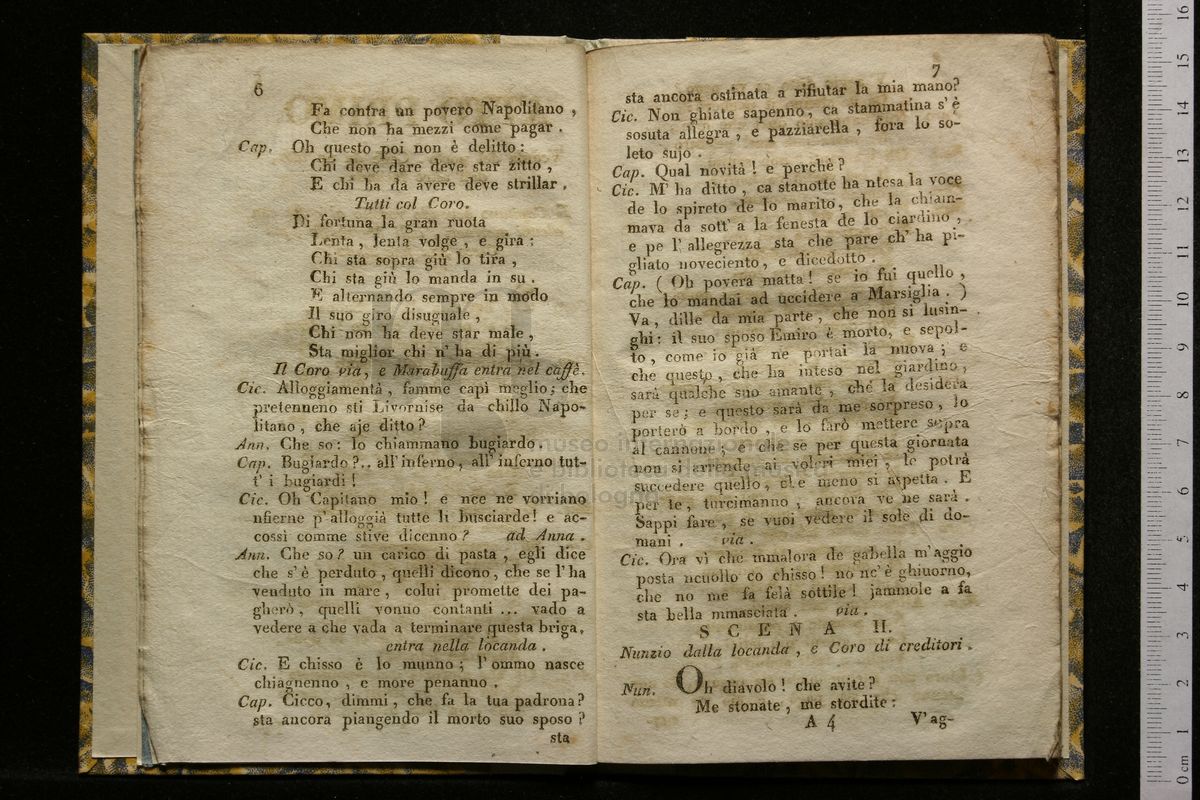 6
Fa contra un povero Napolitano ,
Che non ha mezzi come pagar .
Cap. Oh questo poi non è delitto :
Chi deve dare deve star zitto ,
E chi ha da avere deve strillar .
Tutti col Coro.
Di fortuna la gran ruota
Lenta , lenta volge , e gira :
Chi sta sopra giù lo tira ,
Chi sta giù lo manda in su .
E alternando sempre in modo
Il suo giro disuguale ,
Chi non ha deve star male ,
Sta miglior chi n' ha di più .
Il Coro via, e Marabuffa entra nel caffè.
Cic. Alloggiamentà , famme capì meglio ; che
pretenneno sti Livornise da chillo Napo-
litano , che aje ditto ?
Ann. Che so : lo chiammano bugiardo .
Cap. Bugiardo ?.. all' inferno , all' inferno tut-
t' i bugiardi !
Cic. Oh Capitano mio ! e nce ne vorriano
nfierne p' alloggià tutte li busciarde! e ac-
cossì comme stive dicenno ? ad Anna .
Ann. Che so ? un carico di pasta , egli dice
che s' è perduto , quelli dicono , che se l' ha
venduto in mare , colui promette dei pa-
gherò , quelli vonno contanti ... vado a
vedere a che vada a terminare questa briga.
entra nella locanda .
Cic. E chisso è lo munno ; l' ommo nasce
chiagnenno , e more penanno .
Cap. Cicco, dimmi , che fa la tua padrona?
sta ancora piangendo il morto suo sposo ?
sta
7
sta ancora ostinata a rifiutar la mia mano?
Cic. Non ghiate sapenno, ca stammatina s' è
sosuta allegra , e pazziarella , fora lo so-
leto sujo .
Cap. Qual novità ! e perchè ?
Cic. M' ha ditto , ca stanotte ha ntesa la voce
de lo spireto de lo marito, che la chiam-
mava da sott' a la fenesta de lo ciardino ,
e pe l' allegrezza sta che pare ch' ha pi-
gliato noveciento , e dicedotto .
Cap. ( Oh povera matta ! se io fui quello ,
che lo mandai ad uccidere a Marsiglia . )
Va , dille da mia parte , che non si lusin-
ghi : il suo sposo Emiro è morto, e sepol-
to , come io già ne portai la nuova ; e
che questo , che ha inteso nel giardino ,
sarà qualche suo amante , che la desidera
per se ; e questo sarà da me sorpreso , lo
porterò a bordo , e lo farò mettere sopra
al cannone ; e che se per questa giornata
non si arrende ai voleri miei , le potrà
succedere quello , che meno si aspetta . E
per te , turcimanno , ancora ve ne sarà .
Sappi fare , se vuoi vedere il sole di do-
mani . via .
Cic. Ora vì che mmalora de gabella m' aggio
posta ncuollo co chisso ! no nc' è ghiuorno,
che no me fa felà sottile ! jammole a fa
sta bella mmasciata . via .
SCENA II.
Nunzio dalla locanda , e Coro di creditori .
Nun. Oh diavolo ! che avite ?
Me stonate , me stordite :
A 4 V' ag-
museo internazionale
biblioteca della musica
bologna
0 cm 1 2 3 4 5 6 7 8 9 10 11 12 13 14 15 16